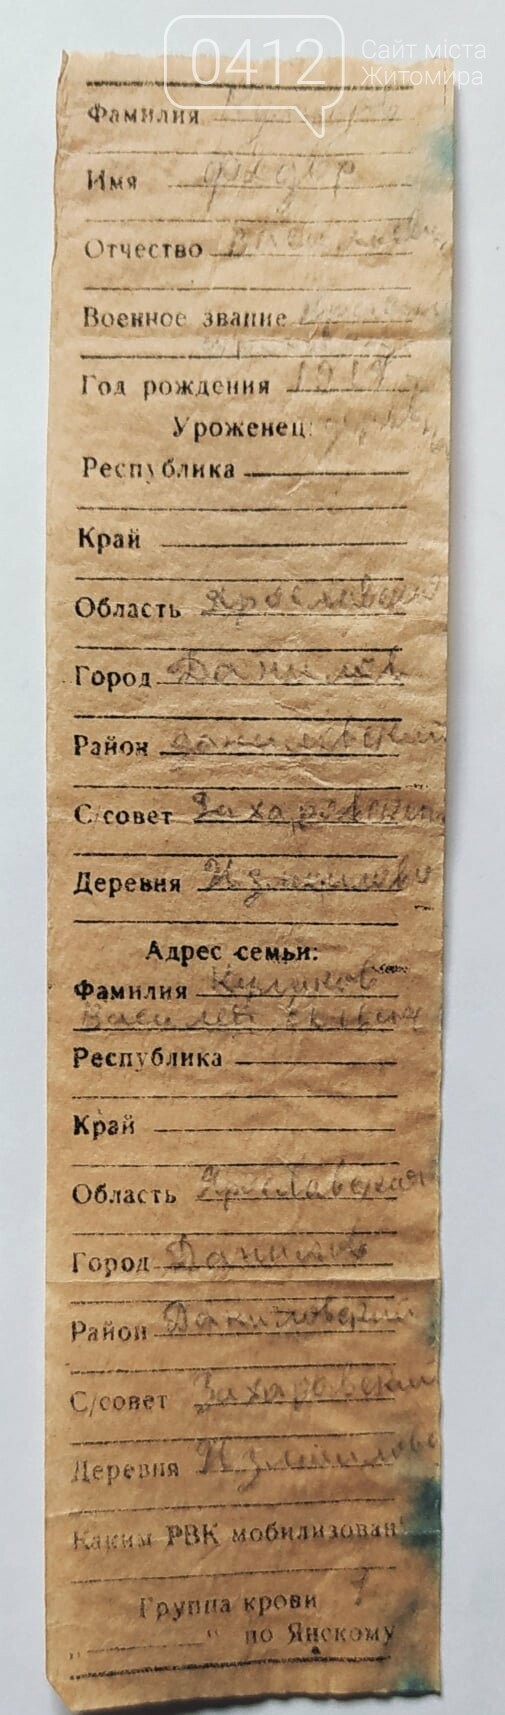 0412 Сайт міста
Житомира
Фамилия
Имя Федор
Отчество Васильевич
Военное звание
Год рождения 1917
Уроженец:
Республика
Край
Область Ярославская
Город Данилов
Район даниловский
С/совет Захаровский
Деревня Измайлово
Адрес семьи:
Фамилия
Республика
Край
Область Ярославская
Город Данилов
Район Даниловский
С/совет Захаровский
Деревня Измайлово
Каким РВК мобилизован
Группа крови 1
„ “ по Янскому